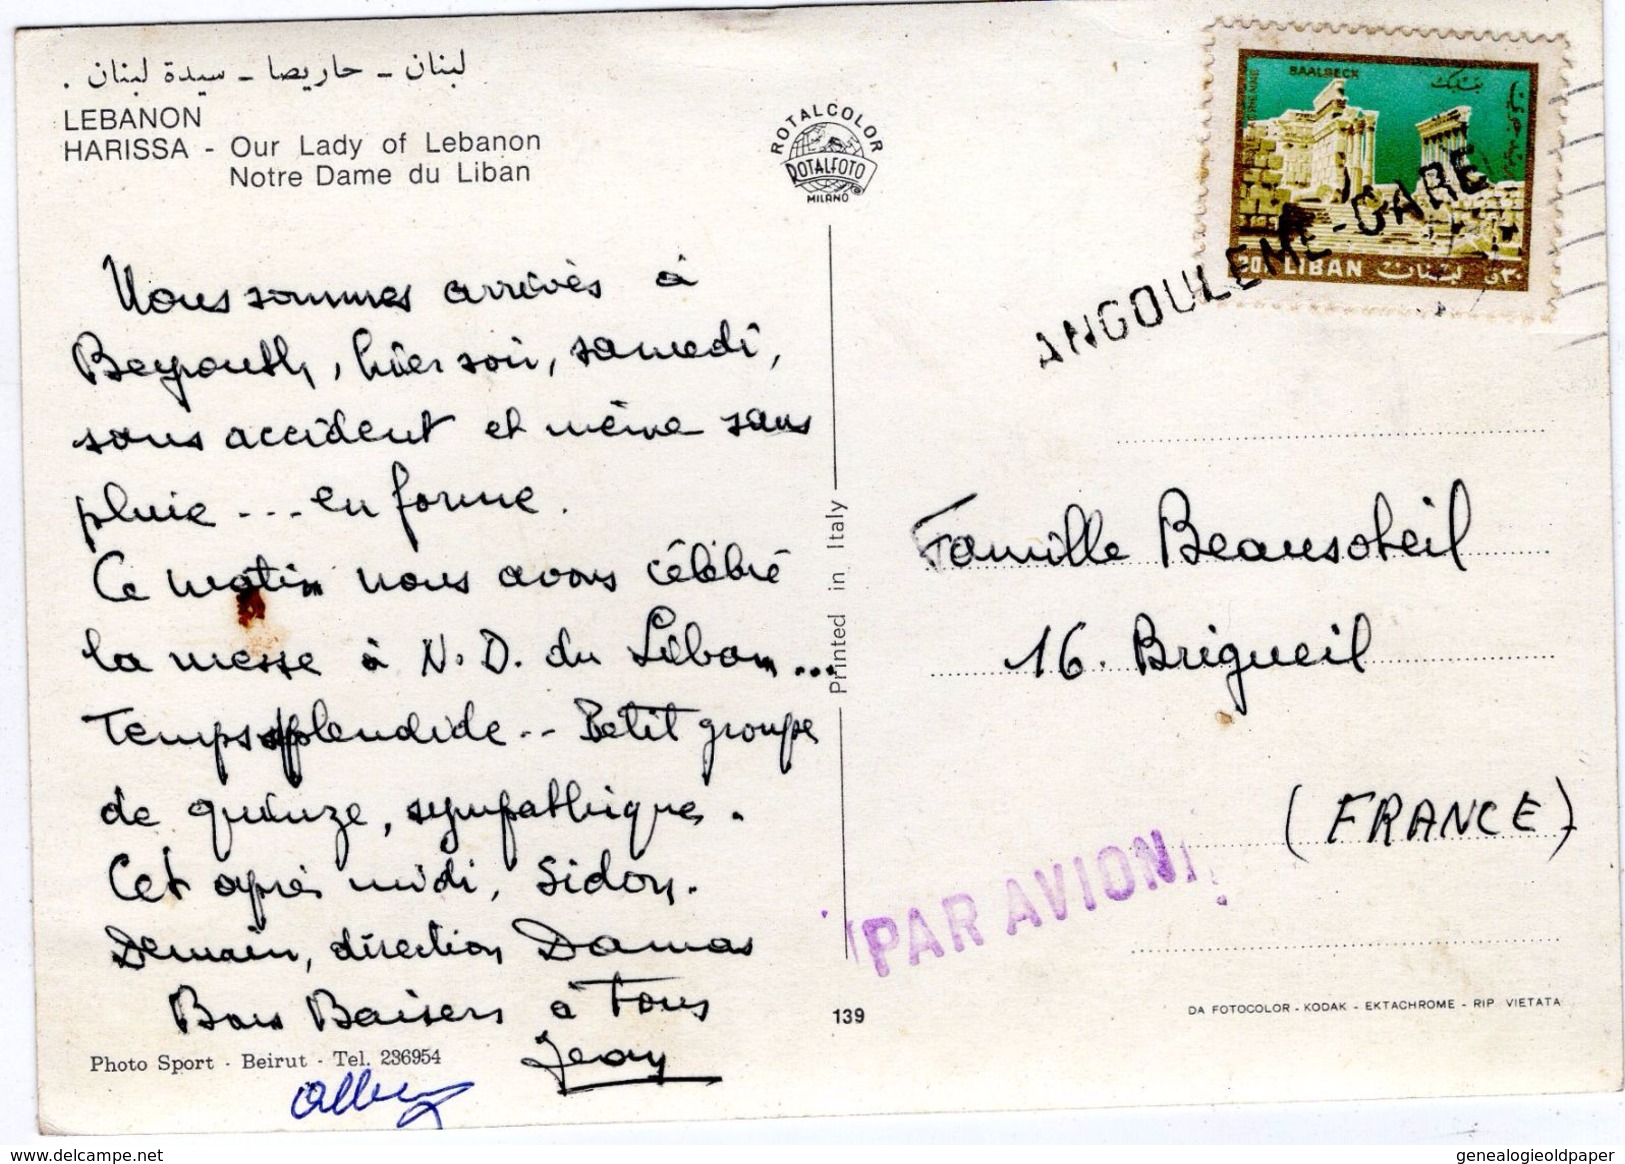 لبنان - حاريصا - سيدة لبنان .
LEBANON
HARISSA - Our Lady of Lebanon
Notre Dame du Liban
Nous sommes arrivés à
Beyrouth, hier soir, samedi,
sans accident et même sans
pluie ... en forme.
Ce matin nous avons célébré
la messe à N.D. du Liban ...
Temps splendide .. Petit groupe
de quinze, sympathique.
Cet après midi, Sidon.
Demain, direction Damas
Bons Baisers à Tous
Jean
Photo Sport - Beirut - Tel. 236954
ROTALCOLOR
ROTALFOTO
MILANO
Printed in Italy
139
BAALBECK
بعلبك
LIBAN
لبنان
٣٠ق
ANGOULEME-GARE
Famille Beausoleil
16. Brigueil
(FRANCE)
PAR AVION
DA FOTOCOLOR - KODAK - EKTACHROME - RIP. VIETATA
delcampe.net
genealogieoldpaper